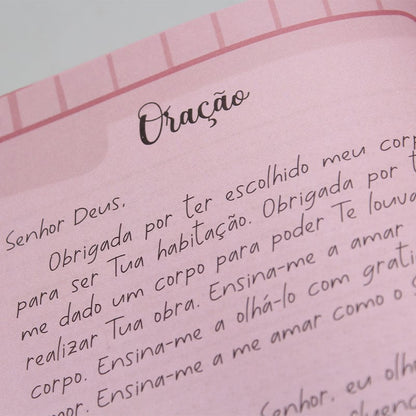 Oração
Senhor Deus,
Obrigada por ter escolhido meu corp
para ser Tua habitação. Obrigada por t
me dado um corpo para poder Te louva
realizar Tua obra. Ensina-me a amar
corpo. Ensina-me a olhá-lo com grati
mor. Ensina-me a me amar como o S
Senhor, eu olh